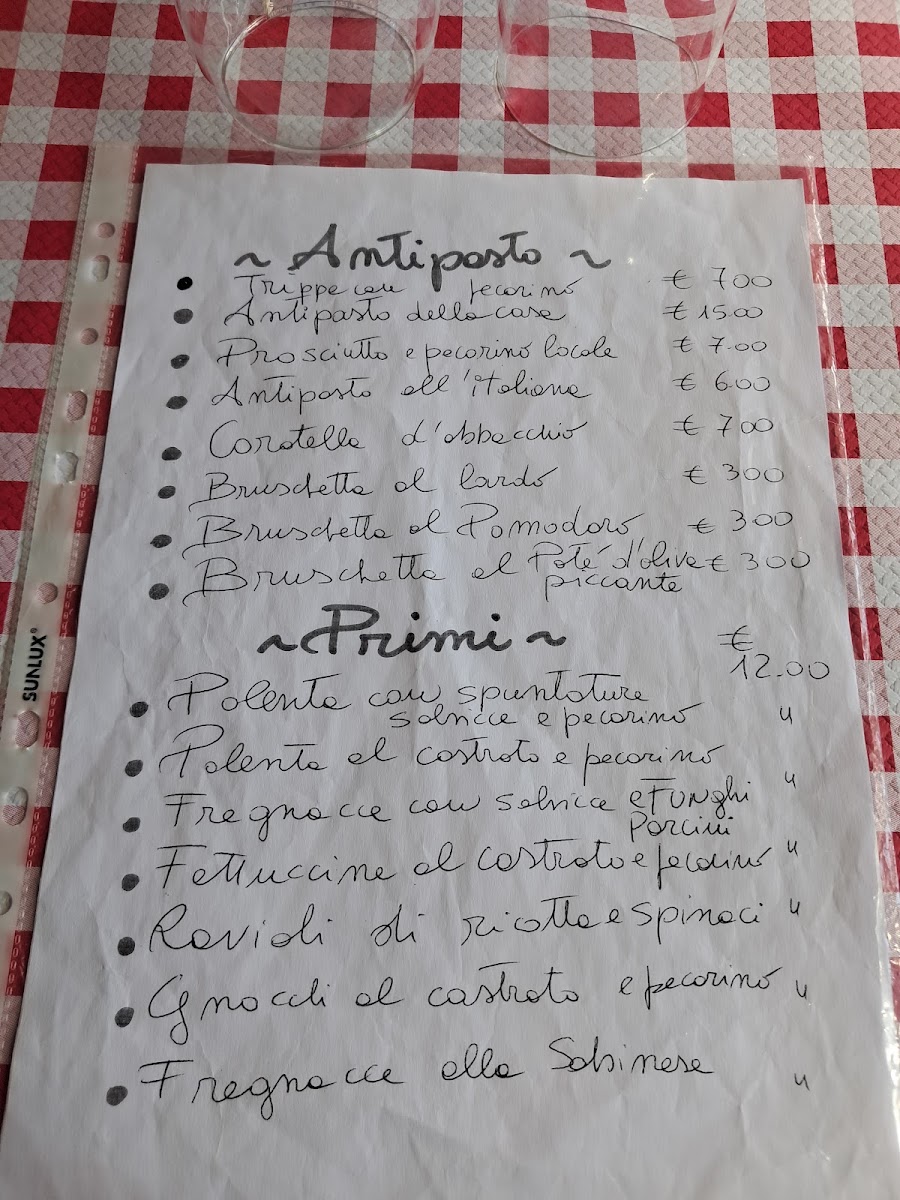 ~ Antipasto ~
Trippe con pecorino € 7.00
Antipasto della casa € 15.00
Prosciutto e pecorino locale € 7.00
Antipasto all'italiana € 6.00
Coratella d'abbacchio € 7.00
Bruschetta al lardo € 3.00
Bruschetta al Pomodoro € 3.00
Bruschetta al Paté d'olive € 3.00
piccante
~ Primi ~ €
12.00
Polenta con spuntature
salsicce e pecorino "
Polenta al castrato e pecorino "
Fregnacce con salsicce e Funghi
Porcini "
Fettuccine al castrato e pecorino "
Ravioli di ricotta e spinaci "
Gnocchi al castrato e pecorino "
Fregnacce alla Sabinese "
SUNLUX®